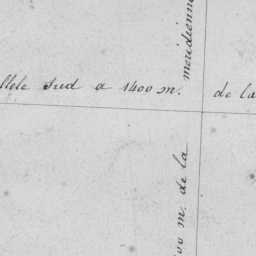 llele Sud a 1400 m. de la
meridienne
00 m. de la